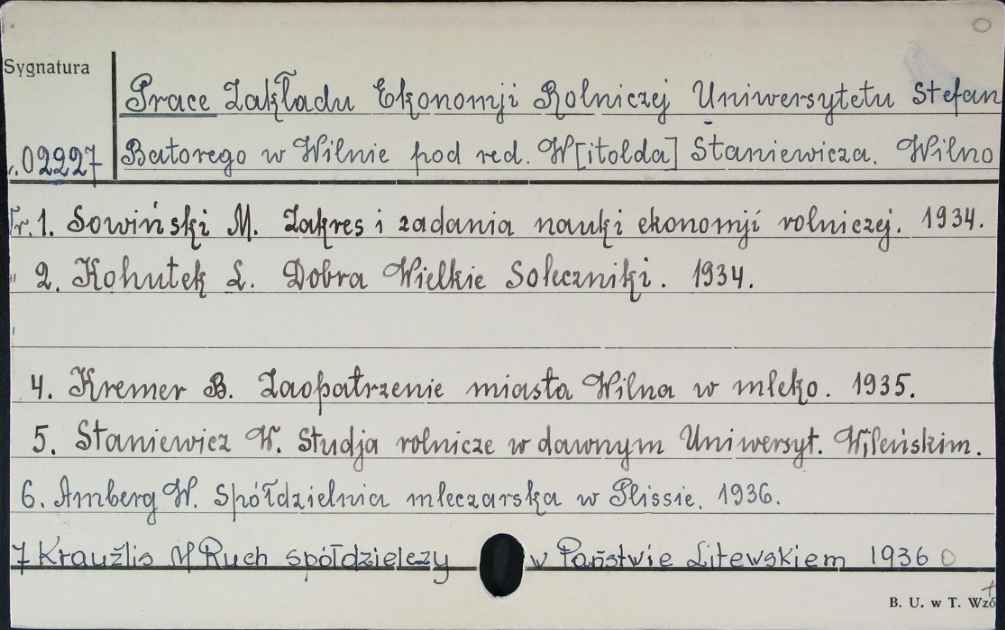 Sygnatura
Prace Zakładu Ekonomji Rolniczej Uniwersytetu Stefan
02227 Batorego w Wilnie pod red. W[itolda] Staniewicza. Wilno
Nr. 1. Sowiński M. Zakres i zadania nauki ekonomji rolniczej. 1934.
" 2. Kohutek L. Dobra Wielkie Soleczniki. 1934.
4. Kremer B. Zaopatrzenie miasta Wilna w mleko. 1935.
5. Staniewicz W. Studja rolnicze w dawnym Uniwersyt. Wileńskim.
6. Amberg W. Spółdzielnia mleczarska w Plissie. 1936.
7 Kraużlis M Ruch spółdzielczy w Państwie Litewskiem 1936
B. U. w T. Wzó